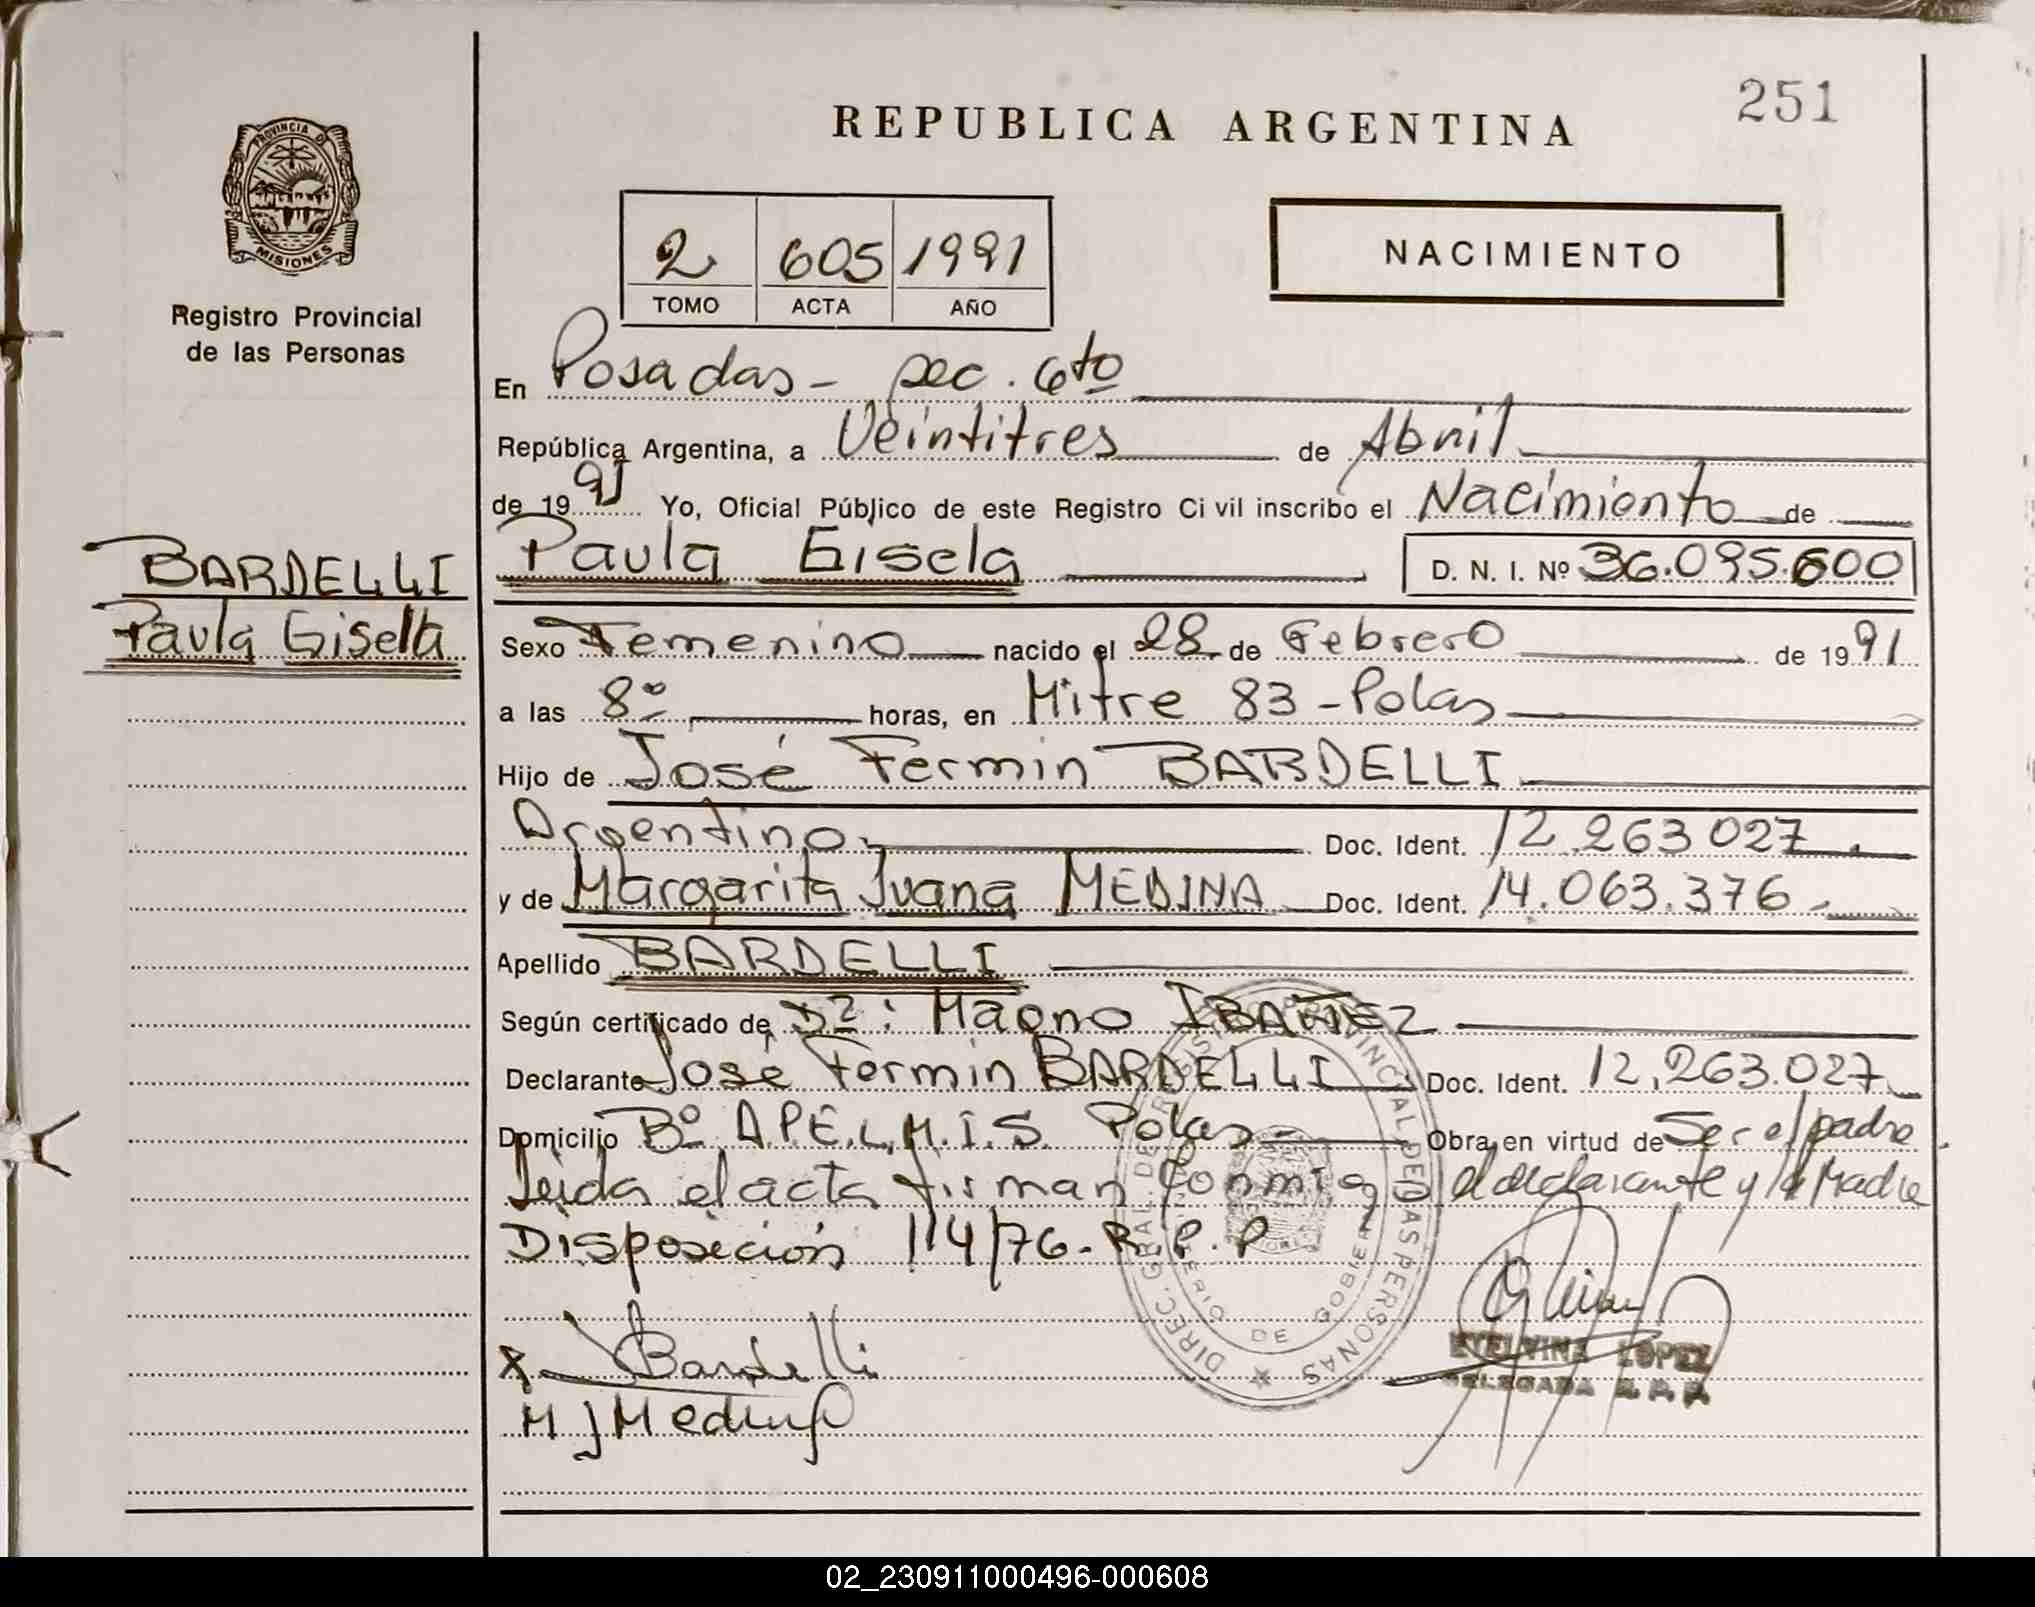 251
REPUBLICA ARGENTINA
PROVINCIA DE
MISIONES
Registro Provincial
de las Personas
2 605 1991
TOMO ACTA AÑO
NACIMIENTO
En Posadas - sec. 6to
República Argentina, a Veintitres de Abril
de 1991 Yo, Oficial Público de este Registro Civil inscribo el Nacimiento de
BARDELLI
Paula Gisella
Paula Gisela D. N. I. Nº 36.095.600
Sexo Femenino nacido el 28 de Febrero de 1991
a las 8º horas, en Mitre 83 - Pdas
Hijo de José Fermin BARDELLI
Argentino Doc. Ident. 12.263 027.
y de Margarita Juana MEDINA Doc. Ident. 14.063.376.
Apellido BARDELLI
Según certificado de Dº: Magno IBAÑEZ
Declarante José Fermin BARDELLI Doc. Ident. 12.263.027
Domicilio Bº A.P.E.L.M.I.S. Pdas Obra en virtud de Ser el padre
Leida el acta firman conmigo el declarante y la Madre
Disposición 114/76 - R.P.P
DIREC. GRAL. DE REGISTRO PROVINCIAL DE LAS PERSONAS
MINISTERIO DE GOBIERNO
x Bardelli
M J Medina
ETELVINA LOPEZ
DELEGADA R. P. P.
02_230911000496-000608